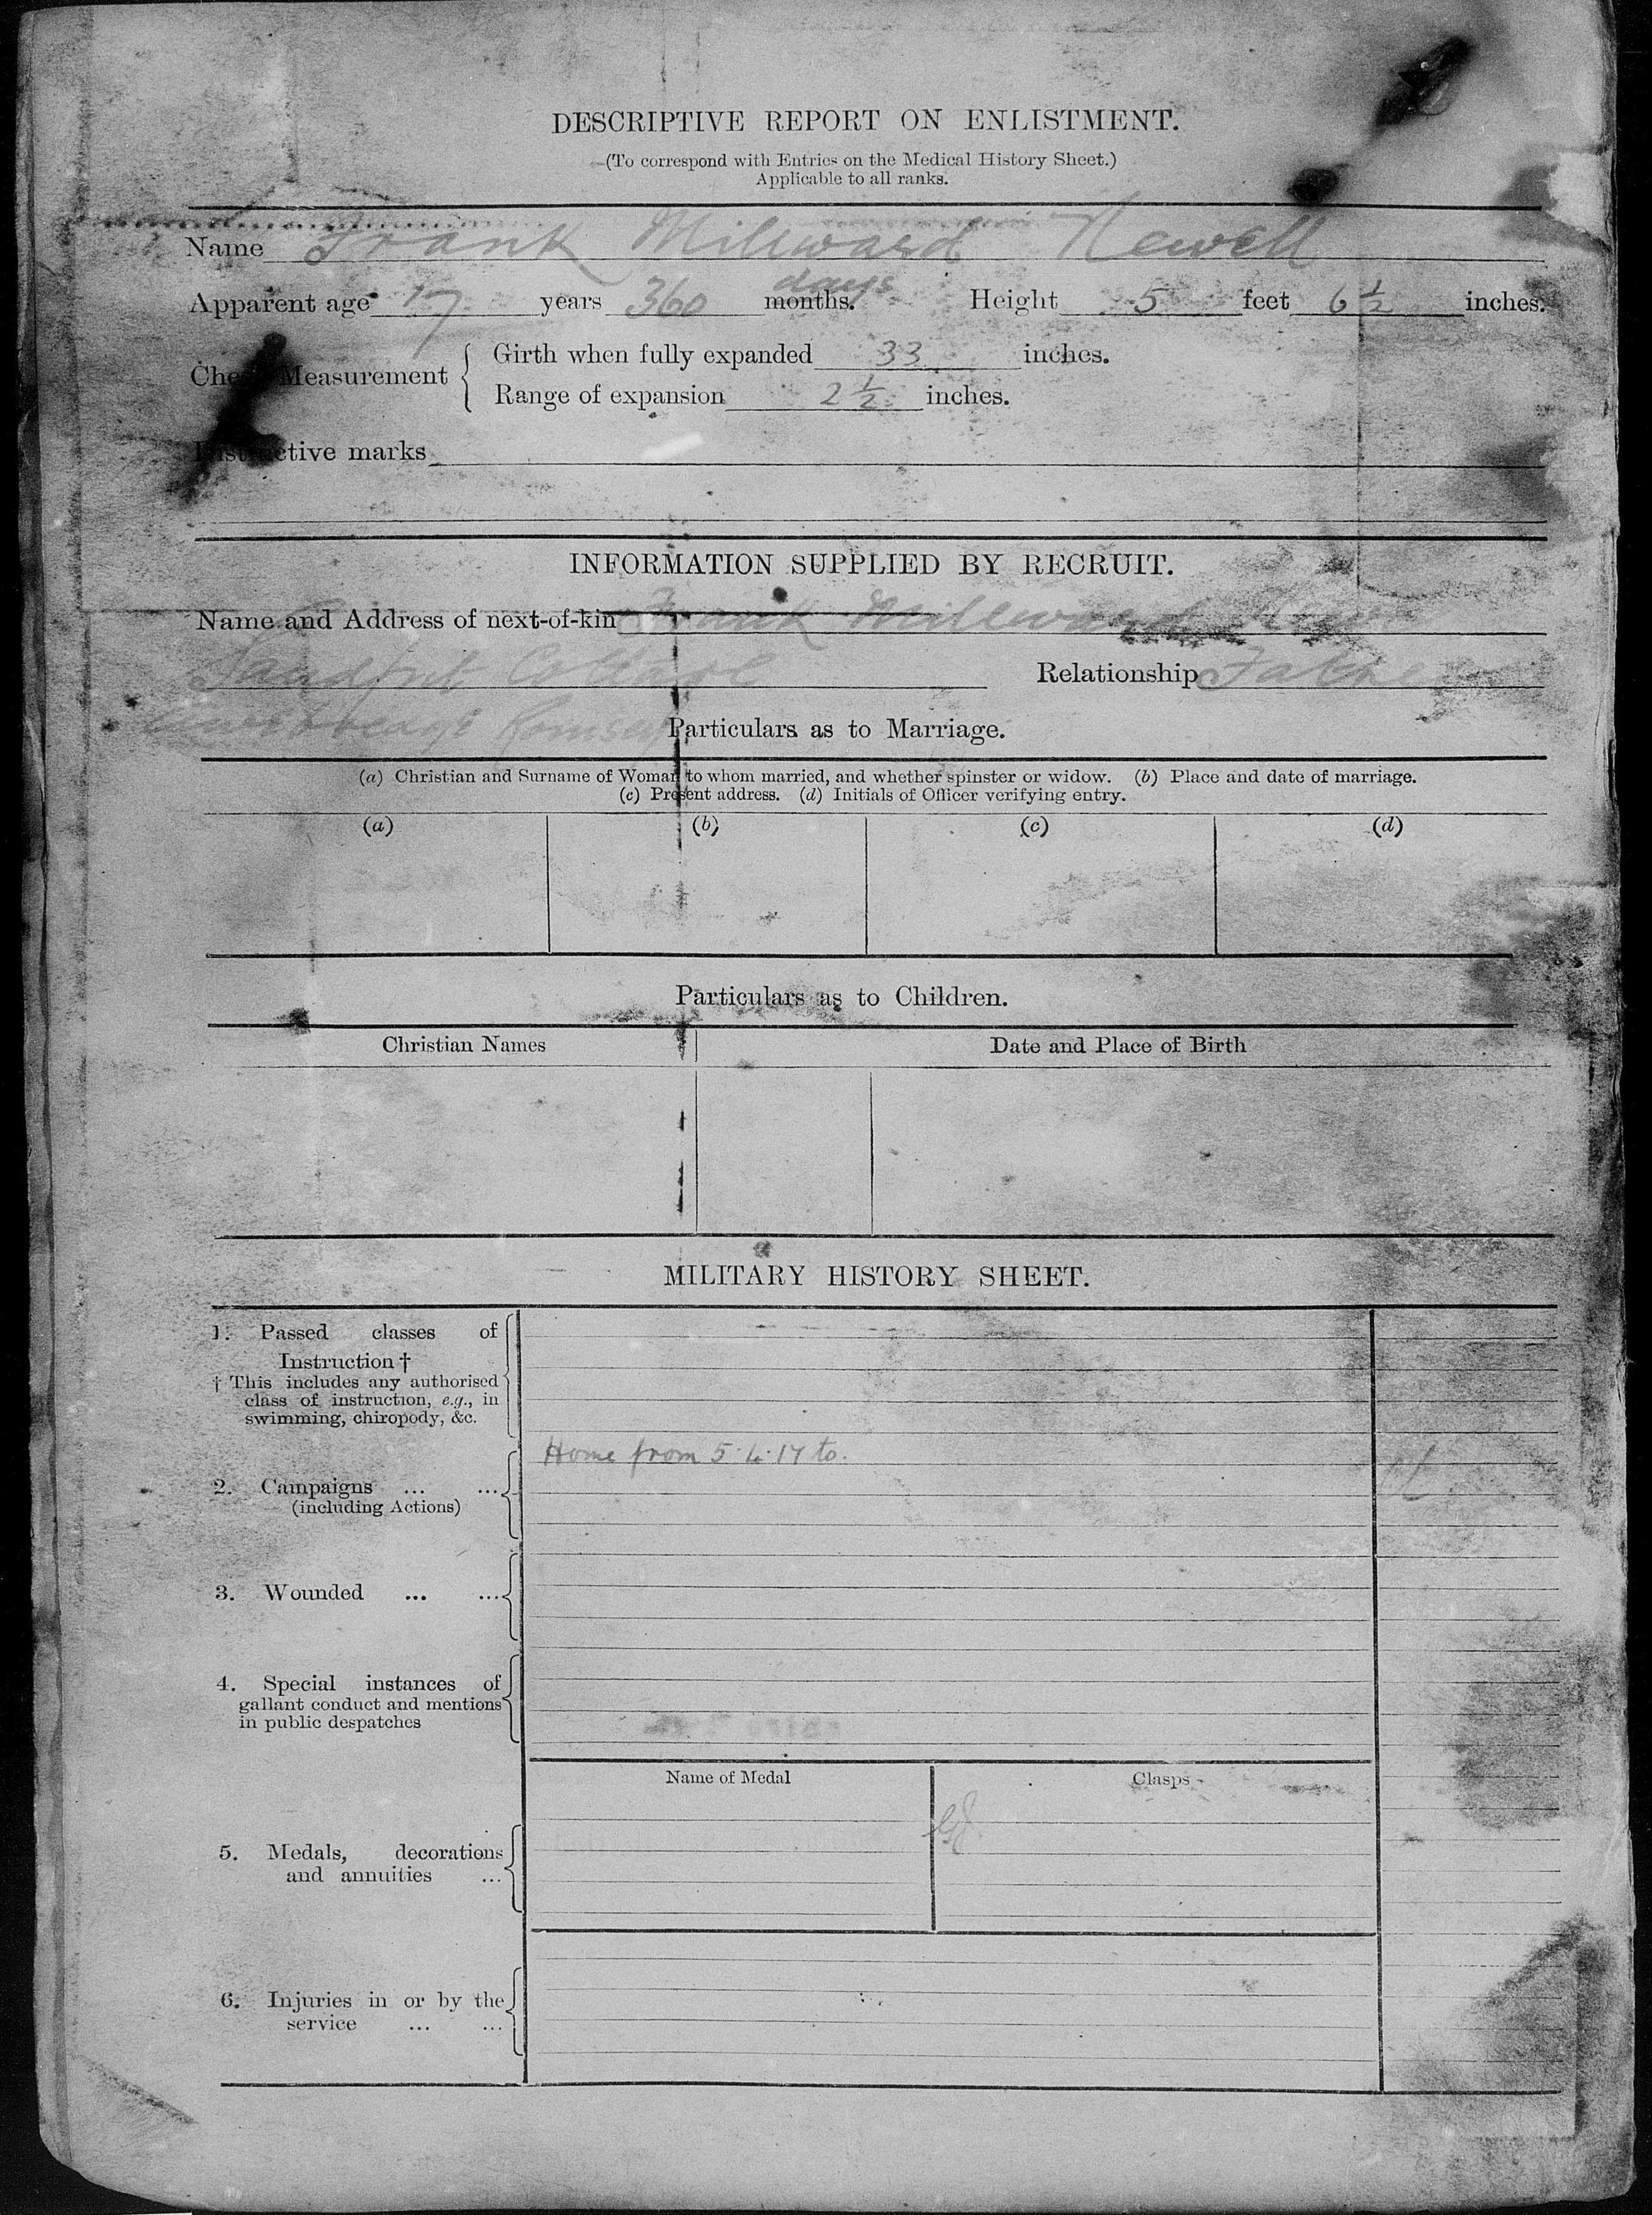 DESCRIPTIVE REPORT ON ENLISTMENT.
(To correspond with Entries on the Medical History Sheet.)
Applicable to all ranks.
Name Frank Millward Newell
days
Apparent age 17 years 360 months. Height 5 feet 6 1/2 inches.
Girth when fully expanded 33 inches.
Chest Measurement {
Range of expansion 2 1/2 inches.
Distinctive marks
INFORMATION SUPPLIED BY RECRUIT.
Name and Address of next-of-kin Frank Millward
Sandpit Cottage Relationship Father
Awbridge Romsey
Particulars as to Marriage.
(a) Christian and Surname of Woman to whom married, and whether spinster or widow. (b) Place and date of marriage.
(c) Present address. (d) Initials of Officer verifying entry.
(a) (b) (c) (d)
Particulars as to Children.
Christian Names Date and Place of Birth
MILITARY HISTORY SHEET.
1. Passed classes of
Instruction †
† This includes any authorised
class of instruction, e.g., in
swimming, chiropody, &c.
Home from 5.4.17 to.
2. Campaigns ... ...
(including Actions)
3. Wounded ... ...
4. Special instances of
gallant conduct and mentions
in public despatches
Name of Medal Clasps
5. Medals, decorations
and annuities ...
6. Injuries in or by the
service ... ...